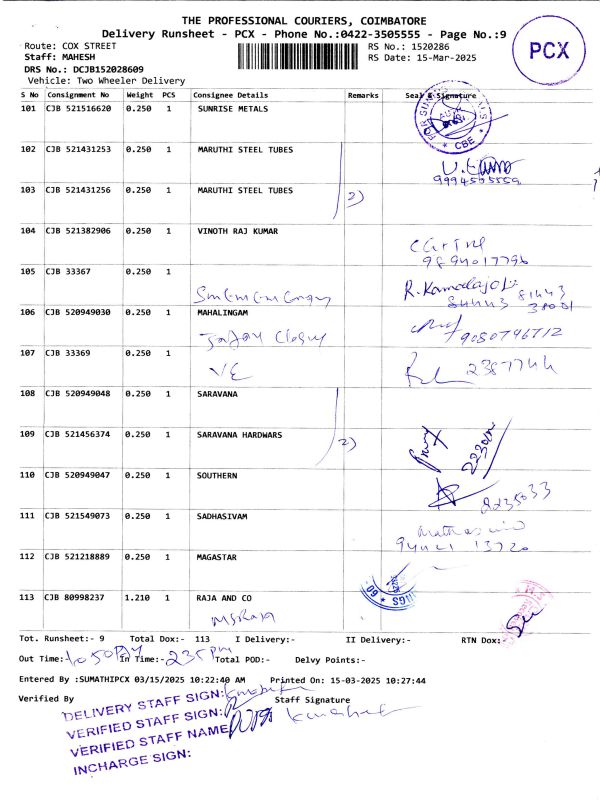 THE PROFESSIONAL COURIERS, COIMBATORE
Delivery Runsheet - PCX - Phone No.:0422-3505555 - Page No.:9
Route: COX STREET
RS No.: 1520286
PCX
Staff: MAHESH
RS Date: 15-Mar-2025
DRS No.: DCJB152028609
Vehicle: Two Wheeler Delivery
S No Consignment No Weight PCS Consignee Details Remarks Seal & Signature
101 CJB 521516620 0.250 1 SUNRISE METALS
CBE
102 CJB 521431253 0.250 1 MARUTHI STEEL TUBES
9994565559
103 CJB 521431256 0.250 1 MARUTHI STEEL TUBES
2)
104 CJB 521382906 0.250 1 VINOTH RAJ KUMAR
9894017796
105 CJB 33367 0.250 1
R. Kamalajothi
106 CJB 520949030 0.250 1 MAHALINGAM
9080796712
107 CJB 33369 0.250 1
VE
2387744
108 CJB 520949048 0.250 1 SARAVANA
109 CJB 521456374 0.250 1 SARAVANA HARDWARS
2)
110 CJB 520949047 0.250 1 SOUTHERN
2235033
111 CJB 521549073 0.250 1 SADHASIVAM
112 CJB 521218889 0.250 1 MAGASTAR
113 CJB 80998237 1.210 1 RAJA AND CO
Tot. Runsheet:- 9 Total Dox:- 113 I Delivery:- II Delivery:- RTN Dox:-
Out Time:- In Time:- 235 pm Total POD:- Delvy Points:-
Entered By :SUMATHIPCX 03/15/2025 10:22:40 AM Printed On: 15-03-2025 10:27:44
Verified By Staff Signature
DELIVERY STAFF SIGN:
VERIFIED STAFF SIGN:
VERIFIED STAFF NAME
INCHARGE SIGN: